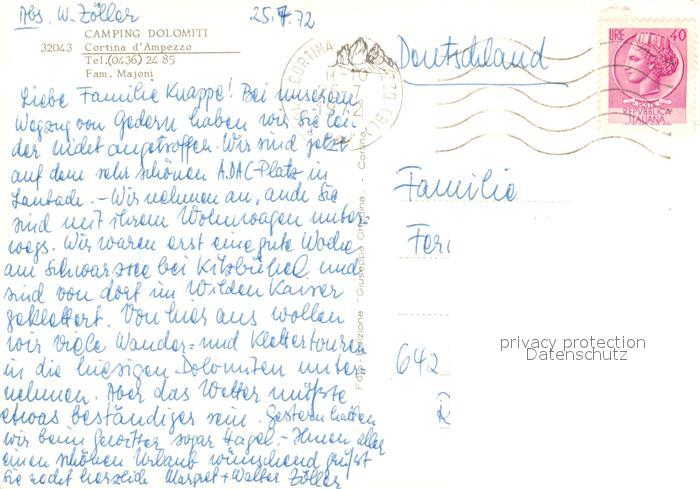 Abs. W. Zöller 25.7.72
CAMPING DOLOMITI
32043 Cortina d'Ampezzo
Tel.(0436) 24 85
Fam. Majoni
Liebe Familie Knappe! Bei unserem
Wegzug von Gedern haben wir Sie lei-
der nicht angetroffen. Wir sind jetzt
auf dem sehr schönen ADAC-Platz in
- Wir nehmen an, auch Sie
sind mit ihrem Wohnwagen unter-
wegs. Wir waren erst eine gute Woche
am Schwarzsee bei Kitzbühel und
sind von dort im Wilden Kaiser
geklettert. Von hier aus wollen
wir viele Wander- und Klettertouren
in die hiesigen Dolomiten unter-
nehmen. Aber das Wetter müßte
etwas beständiger sein. Gestern hatten
wir beim Gewitter sogar Hagel. - Ihnen allen
einen schönen Urlaub wünschend grüßt
Sie recht herzlich Margret + Walter Zöller
Foto Edizione "Giuseppe Ghedina" - Cortina
CORTINA
LIRE 40
REPVBBLICA
ITALIANA
Deutschland
Familie
Fer
642
privacy protection
Datenschutz